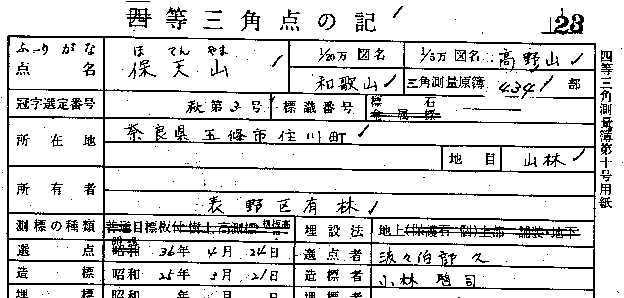 四等三角点の記
23
ふりがな ほてんやま 1/20万 図名 1/5万 図名 高野山
点名 保天山 和歌山 三角測量原簿 4341 部
冠字選定番号 萩第3号 標識番号 標石 金属標
所在地 奈良県五條市住川町
地目 山林
所有者 表野区有林
測標の種類 普通目標板 樹上 高測標 埋設法 地上(保護石 個) 上部 舗装 地下
選点 昭和 36年 4月 24日 選点者 波々伯部久
造標 昭和 25年 3月 21日 造標者 小林 司
埋標 昭和 年 月 日 埋標者
四等三角測量簿第十号用紙